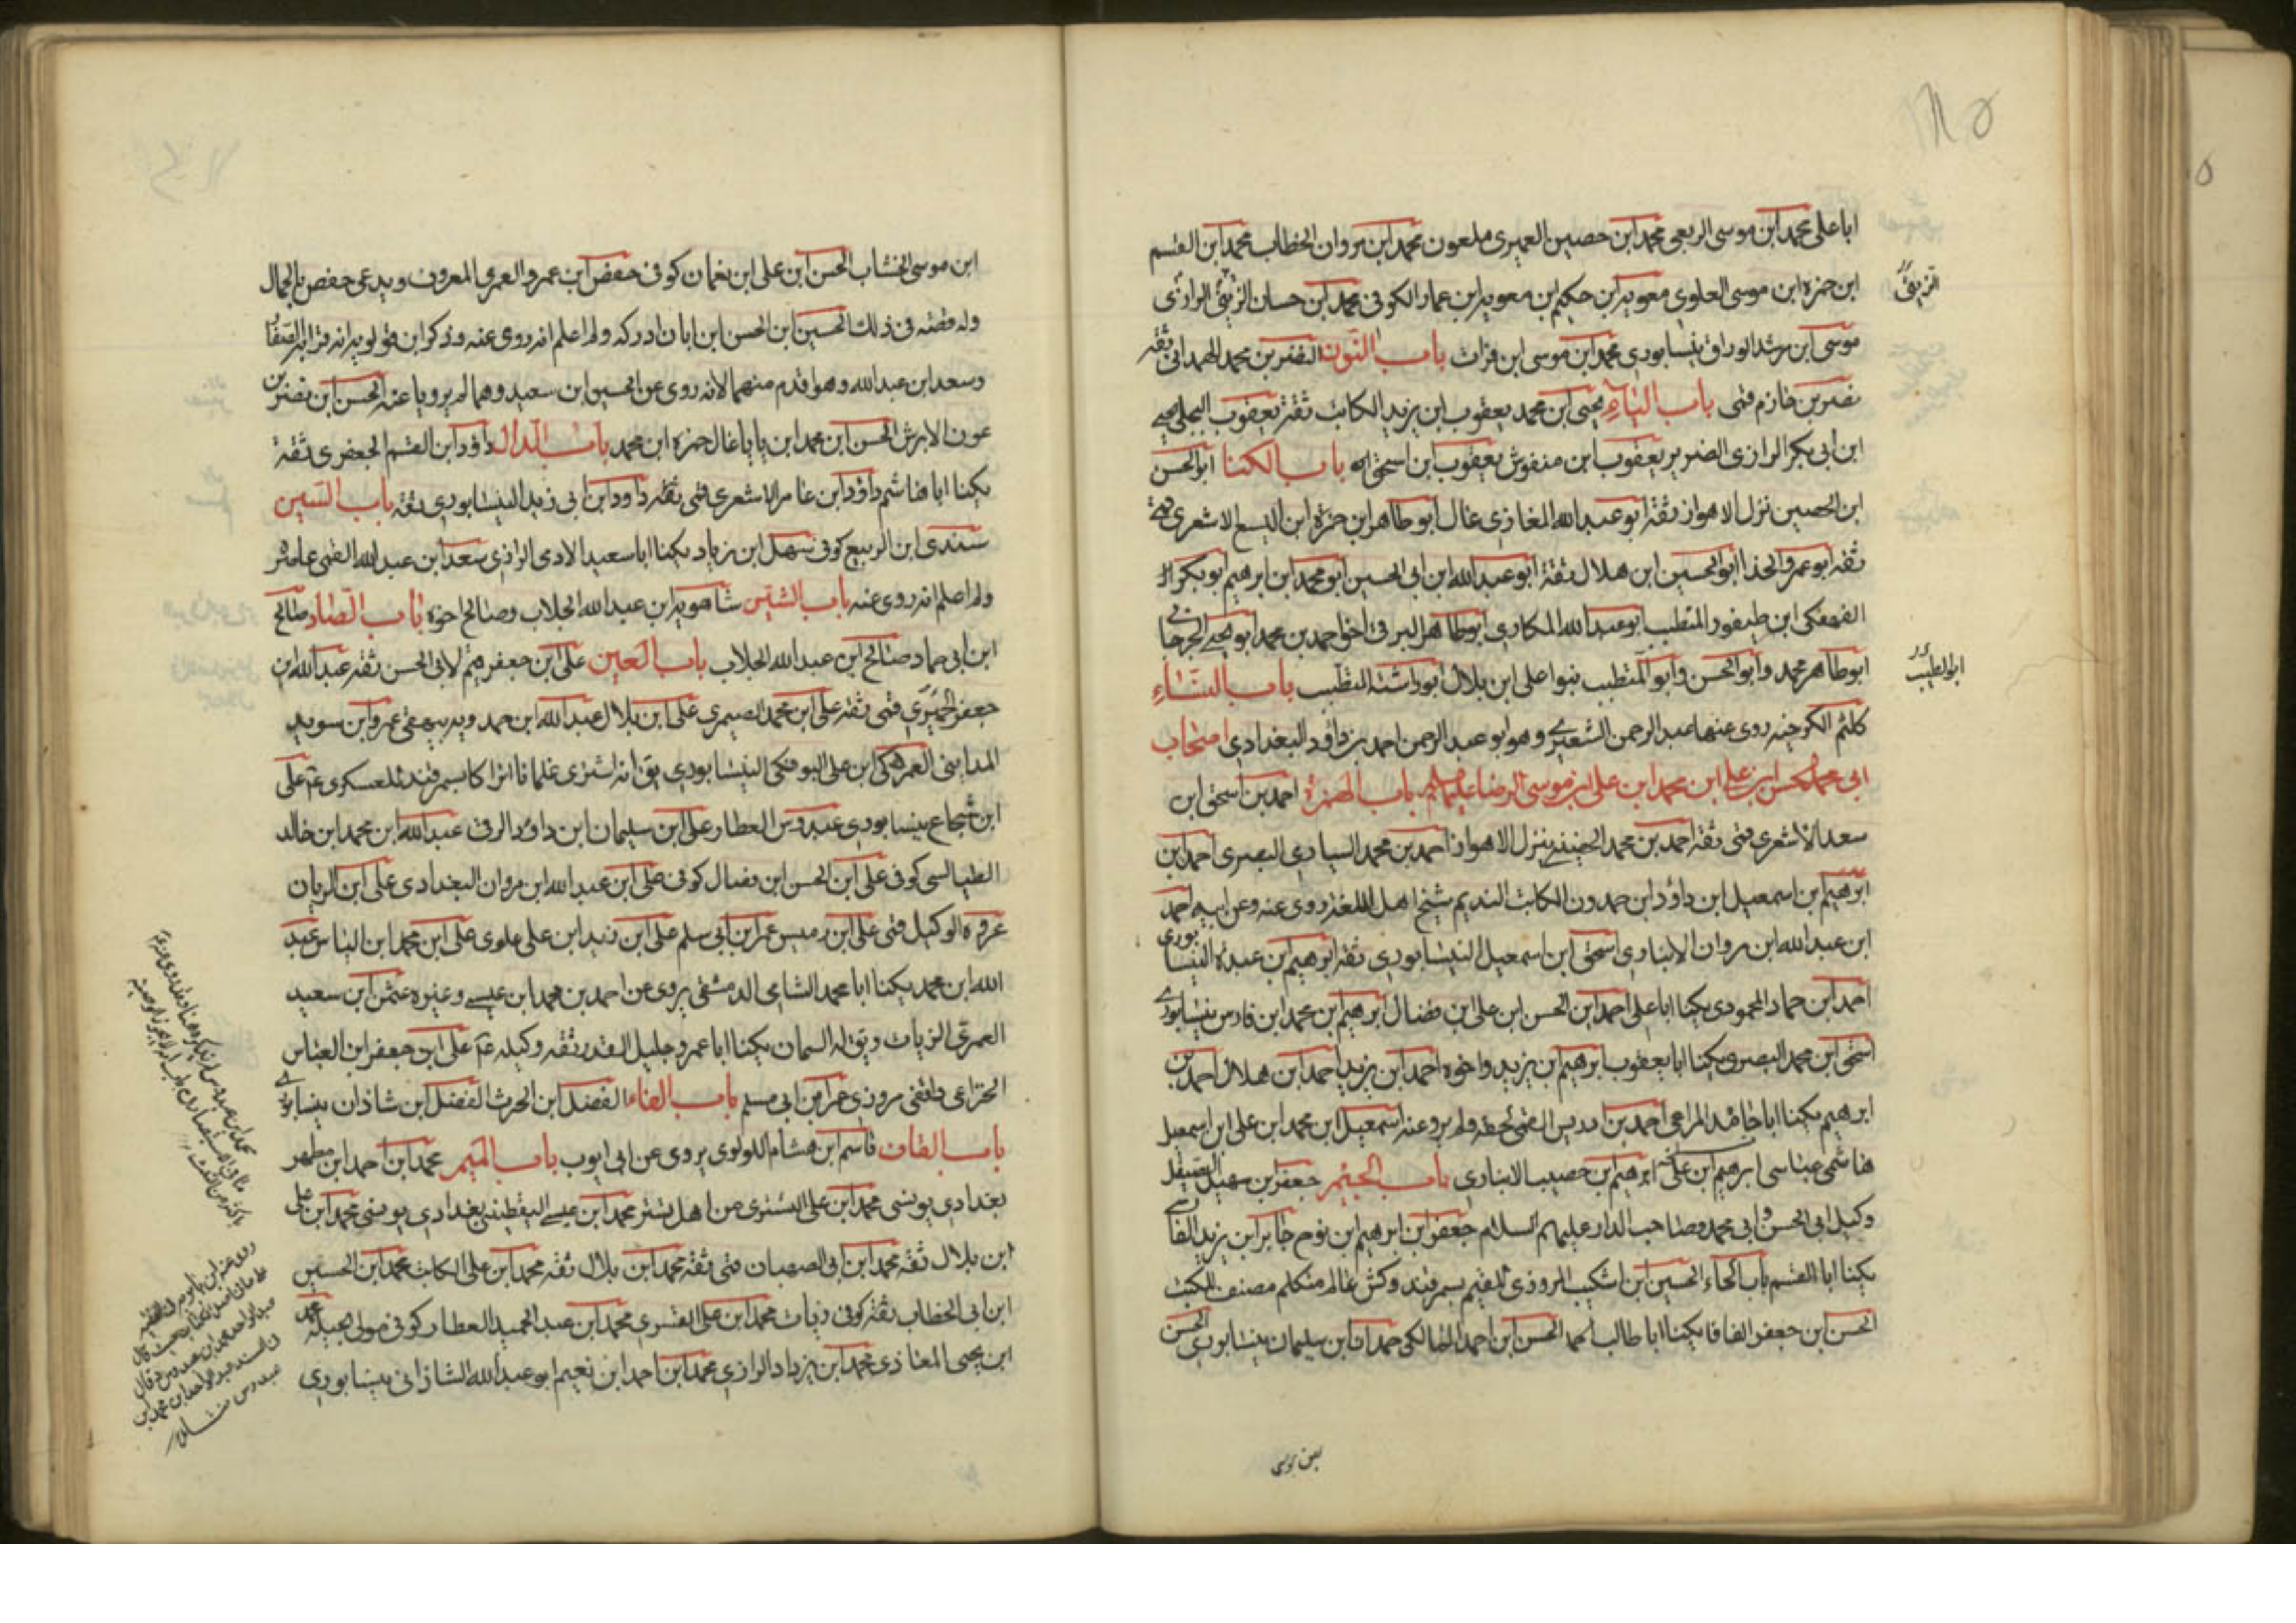 ابا علی محمد ابن موسی الربعی محمد ابن حصین العمیری ملعون محمد ابن مروان الخطاب محمد ابن القسم
ابن حمزه ابن موسی العلوی معویه ابن حکیم ابن معویه ابن عمار الکوفی محمد ابن حسان الزینی الرازی
موسی ابن مرشد الوراق نیسابوری محمد ابن موسی ابن فرات باب النون النضر بن محمد الهمدانی ثقه
نصر بن خازم قمی باب الیاء یحیی ابن محمد یعقوب ابن یزید الکاتب ثقه یعقوب البجلی یحیی
ابن ابی بکر الرازی الضریر یعقوب ابن منقوش یعقوب ابن اسحق باب الکنا ابو الحسن
ابن الحصین نزل الاهواز ثقه ابو عبد الله المغازی غال ابو طاهر ابن حمزه ابن الیسع الاشعری قمی
ثقه ابو عمرو الحذا ابو الحسین ابن هلال ثقه ابو عبد الله ابن ابی الحسین ابو محمد ابن ابرهیم ابو بکر
الفهفکی ابن طیفور المتطبب ابو عبد الله المکاری ابو طاهر البرقی اخو احمد بن محمد ابو یحیی الجرجانی
ابو طاهر محمد وابو الحسن وابو المتطبب بنوا علی ابن بلال ابو باب النساء
کلثم الکرخیه روی عنها عبد الرحمن الشعیری وهو ابو عبد الرحمن احمد بن داود البغدادی اصحاب
ابی محمد الحسن ابن علی ابن محمد ابن علی ابن موسی الرضا علیهم باب الهمزه احمد بن اسحق ابن
سعد الاشعری قمی ثقه احمد بن محمد الحضینی نزل الاهواز احمد بن محمد السیاری البصری احمد ابن
ابرهیم ابن اسمعیل ابن داود ابن حمدون الکاتب الندیم شیخ اهل اللغه روی عنه وعن ابیه احمد
ابن عبد الله ابن مروان الانباری اسحق ابن اسمعیل النیسابوری ثقه ابرهیم ابن عبده النیسابوری
احمد ابن حماد المحمودی یکنا ابا علی احمد ابن الحسن ابن علی ابن فضال ابرهیم ابن محمد ابن فارس نیسابوری
اسحق ابن محمد البصری یکنا ابا یعقوب ابرهیم ابن یزید واخوه احمد ابن یزید احمد ابن هلال احمد بن
ابرهیم یکنا ابا حامد المراعی احمد بن ادریس القمی لحقه ولم یرو عنه اسمعیل ابن محمد ابن علی ابن اسمعیل
هاشمی عباسی ابرهیم ابن علی ابرهیم ابن خصیب الانباری باب الجیم جعفر بن سهیل الصیقل
وکیل ابی الحسن وابی محمد وصاحب الدار علیهم السلام جعفر ابن ابرهیم ابن نوح جابر ابن یزید الفارسی
یکنا ابا القسم باب الحاء الحسین ابن اشکیب المروزی المقیم بسمرقند وکش عالم متکلم مصنف للکتب
الحسن ابن جعفر الفافا یکنا ابا طالب الحسن ابن احمد المالکی حمدان ابن سلیمان نیسابوری الحسن
الزینی
ابو الطیب
ابن موسی
ابن موسی الخشاب الحسن ابن علی ابن نعمان کوفی حفص ابن عمرو العمری المعروف ویدعی حفص بالجمال
وله قصه فی ذلک الحسین ابن الحسن ابن ابان ادرکه ولم اعلم انه روی عنه وذکر ابن قولویه انه قرابه الصفار
وسعد ابن عبد الله وهو اقدم منهما لانه روی عن الحسین ابن سعید وهما لم یرویا عنه الحسن ابن نضر بن
عون الابرش الحسن ابن محمد ابن بابا غال حمزه ابن محمد باب الدال داود ابن القسم الجعفری ثقه
یکنا ابا هاشم داود ابن عامر الاشعری قمی ثقه داود ابن ابی زید النیسابوری ثقه باب السین
سندی ابن الربیع کوفی سهل ابن زیاد یکنا ابا سعید الادمی الرازی سعد ابن عبد الله القمی عاصره
ولم اعلم انه روی عنه باب الشین شاهویه ابن عبد الله الجلاب وصالح اخوه باب الصاد صالح
ابن ابی حماد صالح ابن عبد الله الجلاب باب العین علی ابن جعفر قیم لابی الحسن ثقه عبد الله ابن
جعفر الحمیری قمی ثقه علی ابن محمد الصیمری علی ابن بلال عبد الله ابن حمدویه بیهقی عمرو ابن سوید
المداینی العمرکی ابن علی البوفکی النیسابوری یق انه اشتری غلمانا اتراکا بسمرقند للعسکری علی
ابن شجاع نیسابوری عبدوس العطار علی ابن سلیمان ابن داود الرقی عبد الله ابن محمد ابن خالد
الطیالسی کوفی علی ابن الحسن ابن فضال کوفی علی ابن عبد الله ابن مروان البغدادی علی ابن الریان
عروه الوکیل قمی علی ابن رمیس عمر ابن ابی مسلم علی ابن زید ابن علی علوی علی ابن محمد ابن الیاس عبد
الله ابن محمد یکنا ابا محمد الشامی الدمشقی یروی عن احمد بن محمد ابن عیسی وغیره عثمن ابن سعید
العمری الزیات ویق له السمان یکنا ابا عمرو جلیل القدر ثقه وکیله علی ابن جعفر ابن العباس
الخزاعی واقفی مروزی عمر ابن ابی مسلم باب الفاء الفضل ابن الحرث الفضل ابن شاذان نیسابوری
باب القاف قاسم ابن هشام اللولوی یروی عن ابی ایوب باب المیم محمد ابن احمد ابن مطهر
بغدادی یونسی محمد ابن علی التستری من اهل تستر محمد ابن عیسی الیقطینی بغدادی یونسی محمد ابن علی
ابن بلال ثقه محمد ابن ابی الصهبان قمی ثقه محمد ابن بلال ثقه محمد ابن علی الکاتب محمد ابن الحسین
ابن ابی الخطاب ثقه کوفی زیات محمد ابن علی القسری محمد ابن عبد الحمید العطار کوفی مولی بجیله محمد
ابن یحیی المعاذی محمد ابن یزداد الرازی محمد ابن احمد ابن نعیم ابو عبد الله الشاذانی نیسابوری